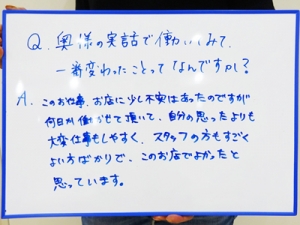 Q. 奥様の実話で働いてみて、
一番変わったことってなんですか?
A. このお仕事、お店に少し不安はあったのですが
何日か働かせて頂いて、自分の思ったよりも
大変仕事もしやすく、スタッフの方もすごく
よい方ばかりで、このお店でよかったと
思っています。